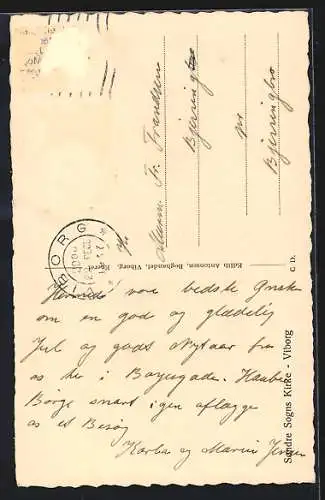 Hermed vore bedste Ønsker
om en god og glædelig
Jul og godt Nytaar fra
os her i Boyesgade. Haaber
Børge snart igen aflægge
os et Besøg
Karba og Marius Jensen
Fr. Frandsen
Bjerringbro
pr
Bjerringbro
Edith Antonsen, Boghandel, Viborg. Eneret.
C D.
Søndre Sogns Kirke - Viborg
VIBORG